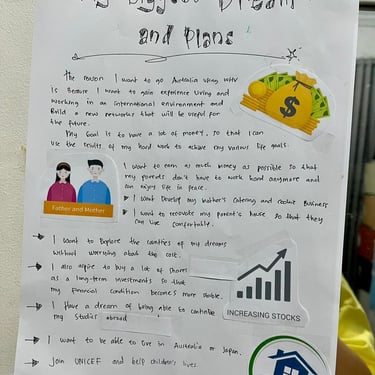 My Biggest Dream
and Plans
The reason I want to go Australia using WHV
is because I want to gain experience living and
working in an international environment and
build a new networks that will be useful for
the future.
My Goal is to have a lot of money, so that I can
use the results of my hard work to achieve my various life goals.
$
I want to earn as much money as possible so that
my parents don't have to work hard anymore and
can enjoy life in peace.
I want Develop my Mother's Catering and Cookies Business
I want to renovate my parent's house so that they
can live comfortable.
Father and Mother
I want to Explore the countries of my dreams
without worrying about the cost.
I also aspire to buy a lot of shares
as a long-term investments so that
my financial condition becomes more stable.
INCREASING STOCKS
I have a dream of being able to continue
my studies abroad
I want to be able to live in Australia or Japan.
Join UNICEF and help children's lives